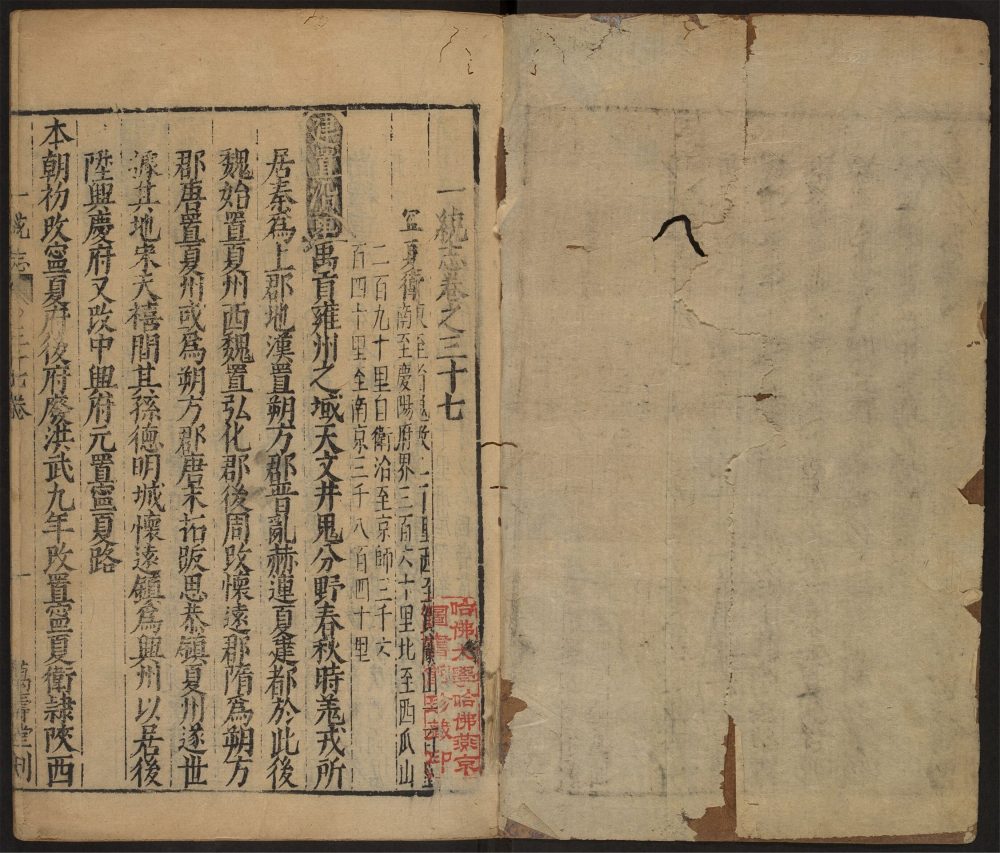 一統志卷之三十七
寧夏衛東至省嵬墩二百里西至賀蘭山
南至慶陽府界三百六十里北至西瓜山
二百九十里自衛治至京師三千六
百四十里至南京三千八百四十里
建置沿革禹貢雍州之域天文井鬼分野春秋時羗戎所
居秦為上郡地漢置朔方郡晉亂赫連夏建都於此後
魏始置夏州西魏置弘化郡後周改懷遠郡隋為朔方
郡唐置夏州或為朔方郡唐末拓跋思恭鎮夏州遂世
據其地宋天禧間其孫德明城懷遠鎮為興州以居後
陞興慶府又改中興府元置寧夏路
本朝初改寧夏府後府廢洪武九年改置寧夏衛隸陝西
一統志 之三十七卷 一 萬壽堂刊
哈佛大學哈佛燕京
圖書館珍藏印